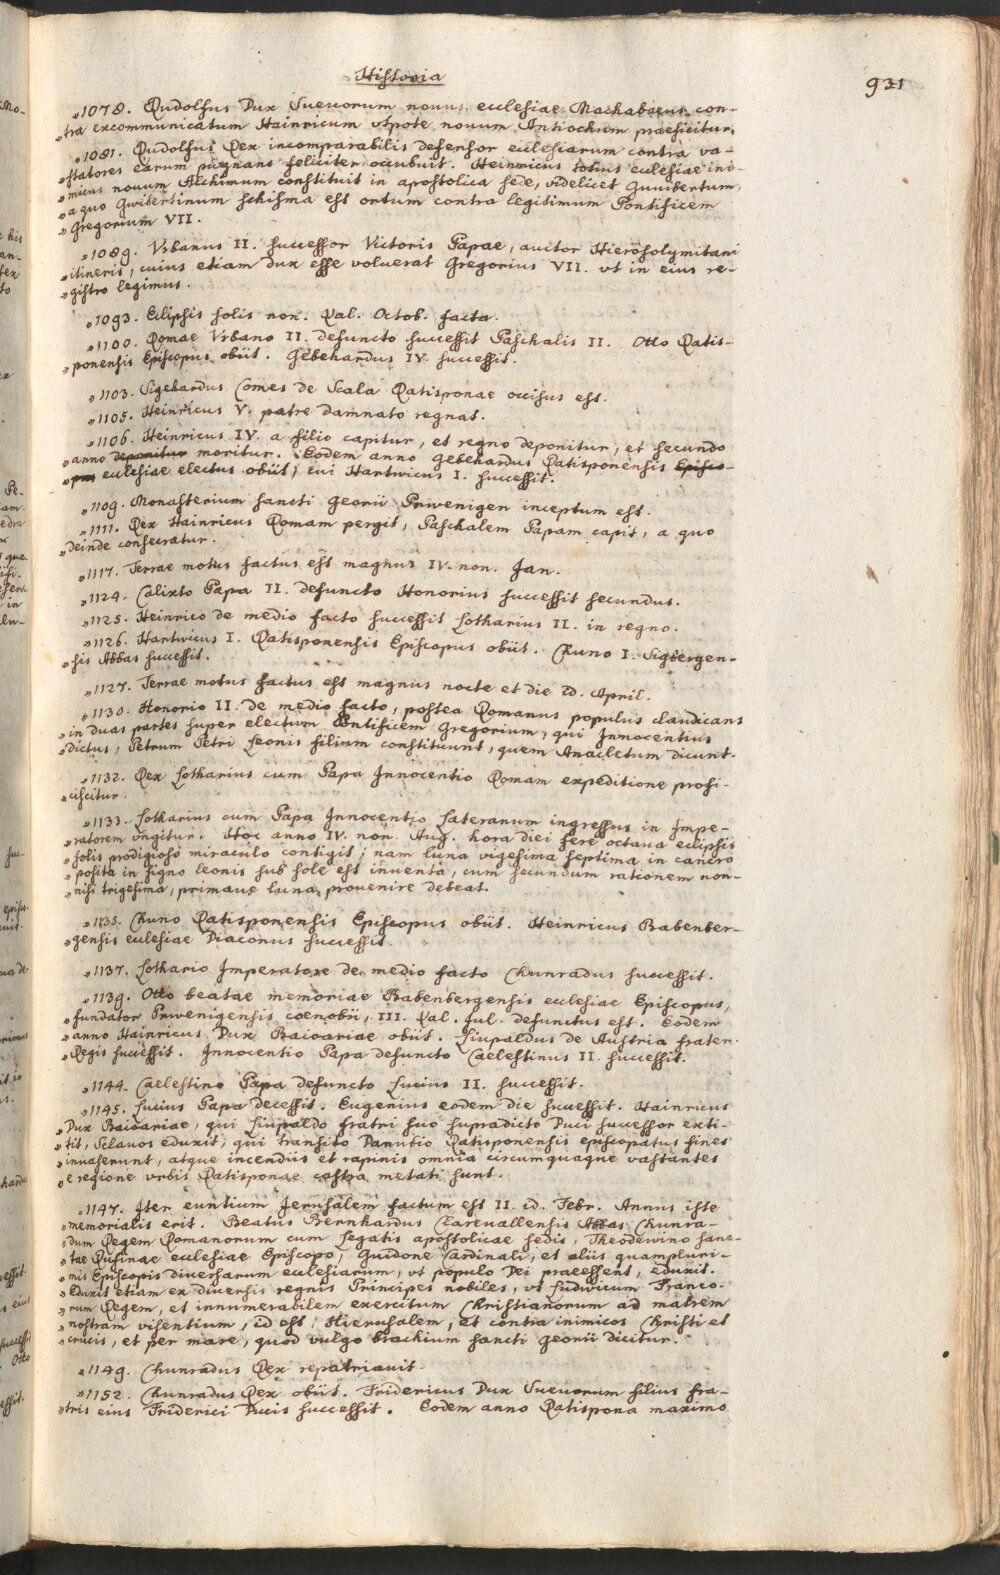 Historia
931
„1078. Rudolfus Dux Sueuorum nouus ecclesiae Machabaeus con-
„tra excommunicatum Hainricum vtpote nouum Antiochum praeficitur.
„1081. Rudolfus Rex incomparabilis defensor ecclesiarum contra va-
„statores earum pugnans feliciter occubuit. Heinricus totius ecclesiae ini-
„micus nouum Alchimum constituit in apostolica sede, videlicet Guuibertum,
„a quo Gwibertinum schisma est ortum contra legitimum Pontificem
„Gregorium VII.
„1089. Vrbanus II. successor Victoris Papae, auctor Hierosolymitani
„itineris, cuius etiam dux esse voluerat Gregorius VII. vt in eius re-
„gistro legimus.
„1093. Eclipsis solis non. Kal. Octob. facta.
„1100. Romae Vrbano II. defuncto successit Paschalis II. Otto Ratis-
„ponensis Episcopus obiit. Gebehardus IV. successit.
„1103. Sigehardus Comes de Scala Ratisponae occisus est.
„1105. Heinricus V. patre damnato regnat.
„1106. Heinricus IV. a filio capitur, et regno deponitur, et secundo
„anno deponitur moritur. Eodem anno Gebehardus Ratisponensis Episco-
„pus ecclesiae electus obiit, cui Hartwicus I. successit.
„1109. Monasterium sancti Georii Prwenigen inceptum est.
„1111. Rex Hainricus Romam pergit, Paschalem Papam capit, a quo
„deinde consecratur.
„1117. Terrae motus factus est magnus IV. non. Jan.
„1124. Calixto Papa II. defuncto Honorius successit secundus.
„1125. Heinrico de medio facto successit Lotharius II. in regno.
„1126. Hartwicus I. Ratisponensis Episcopus obiit. Chuno I. Sigbergen-
„sis Abbas successit.
„1127. Terrae motus factus est magnus nocte et die id. April.
„1130. Honorio II. de medio facto, postea Romanus populus claudicans
„in duas partes super electum Pontificem Gregorium, qui Innocentius
„dictus, Petrum Petri Leonis filium constituunt, quem Anacletum dicunt.
„1132. Rex Lotharius cum Papa Innocentio Romam expeditione profi-
„ciscitur.
„1133. Lotharius cum Papa Innocentio Lateranum ingressus in Impe-
„ratorem vngitur. Hoc anno IV. non. Aug. hora diei fere octaua eclipsis
„solis prodigioso miraculo contigit; nam luna vigesima septima in cancro
„posita in signo leonis sub sole est inuenta, cum secundum rationem non-
„nisi trigesima, primaue luna prouenire debeat.
„1135. Chuno Ratisponensis Episcopus obiit. Heinricus Babenber-
„gensis ecclesiae Diaconus successit.
„1137. Lothario Imperatore de medio facto Chunradus successit.
„1139. Otto beatae memoriae Babenbergensis ecclesiae Episcopus,
„fundator Prwenigensis coenobii, III. Kal. Jul. defunctus est. Eodem
„anno Hainricus Dux Baioariae obiit. Liupaldus de Austria frater
„Regis successit. Innocentio Papa defuncto Caelestinus II. successit.
„1144. Caelestino Papa defuncto Lucius II. successit.
„1145. Lucius Papa decessit. Eugenius eodem die successit. Hainricus
„Dux Baioariae, qui Liupaldo fratri suo supradicto Duci successor exti-
„tit, Sclauos eduxit, qui transito Danubio Ratisponensis episcopatus fines
„inuaserunt, atque incendiis et rapinis omnia circumquaque vastantes
„e regione vrbis Ratisponae castra metati sunt.
„1147. Iter euntium Jerusalem factum est II. id. Febr. Annus iste
„memorialis erit. Beatus Bernhardus Clareuallensis Abbas Chunra-
„dum Regem Romanorum cum legatis apostolicae sedis, Theodewino sanc-
„tae Rufinae ecclesiae Episcopo, Guidone Cardinali, et aliis quampluri-
„mis Episcopis diuersarum ecclesiarum, vt populo Dei praeessent, eduxit.
„Eduxit etiam ex diuersis regnis Principes nobiles, vt Ludwicum Franco-
„rum Regem, et innumerabilem exercitum Christianorum ad matrem
„nostram visentium, id est, Hierusalem, et contra inimicos Christi et
„crucis, et per mare, quod vulgo brachium sancti Georii dicitur.
„1149. Chunradus Rex repatriauit.
„1152. Chunradus Rex obiit. Fridericus Dux Sueuorum filius fra-
„tris eius Friderici Ducis successit. Eodem anno Ratispona maximo